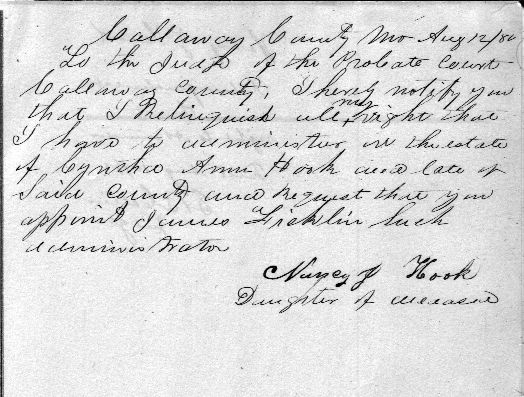 Callaway County Mo Aug 12/80
To the Judge of the Probate court
Callaway County, I hereby notify you
that I Relinquish all my right that
I have to administer on the estate
of Cynthia Ann Hook decd late of
Said County and Request that you
appoint James Ficklin such
administrator
Nancy J Hook
Daughter of deceased